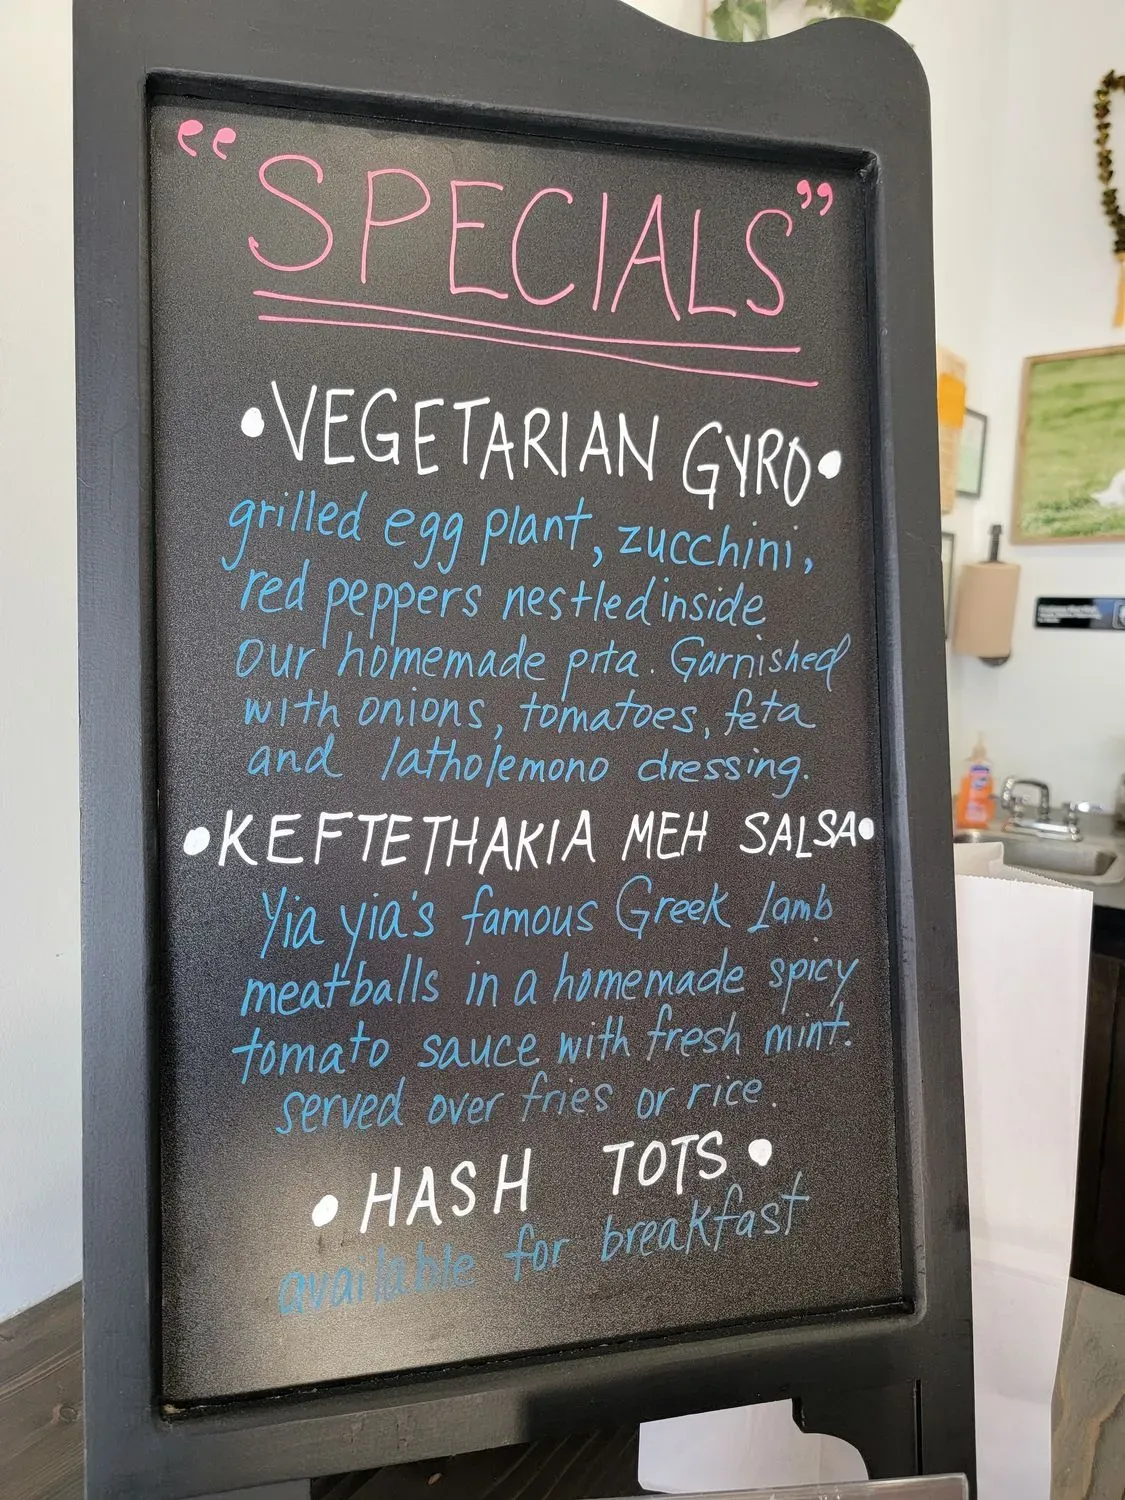 “SPECIALS”
•VEGETARIAN GYRO•
grilled egg plant, zucchini,
red peppers nestled inside
our homemade pita. Garnished
with onions, tomatoes, feta
and latholemono dressing.
•KEFTETHAKIA MEH SALSA•
Yia yia's famous Greek Lamb
meatballs in a homemade spicy
tomato sauce with fresh mint.
served over fries or rice.
•HASH TOTS•
available for breakfast